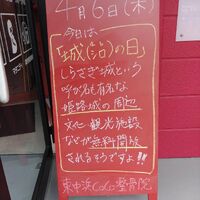 4月6日(木)
今日は
「城(しろ)の日」
しらさぎ城という
呼び名も有名な
姫路城の周辺
文化・観光施設
などが無料開放
されるそうですよ!!
東中浜CoCo整骨院